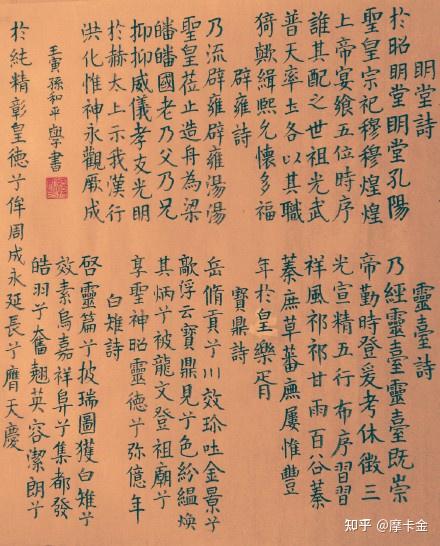 明堂詩
於昭明堂明堂孔陽
聖皇宗祀穆穆煌煌
上帝宴饗五位時序
誰其配之世祖光武
普天率土各以其職
猗歟緝熙允懷多福
辟雍詩
乃流辟雍辟雍湯湯
聖皇莅止造舟為梁
皤皤國老乃父乃兄
抑抑威儀孝友光明
於赫太上示我漢行
洪化惟神永觀厥成
靈臺詩
乃經靈臺靈臺既崇
帝勤時登爰考休徵三
光宣精五行布序習習
祥風祁祁甘雨百谷蓁
蓁庶草蕃廡屢惟豐
年於皇樂胥
寶鼎詩
岳脩貢兮川效珍吐金景兮
歊浮云寶鼎見兮色紛緼煥
其炳兮被龍文登祖廟兮
享聖神昭靈德兮弥億年
白雉詩
啓靈篇兮披瑞圖獲白雉兮
效素烏嘉祥阜兮集都發
皓羽兮奮翹英容潔朗兮
於純精彰皇德兮侔周成永延長兮膺天慶
壬寅孫和平學書
知乎 @摩卡金